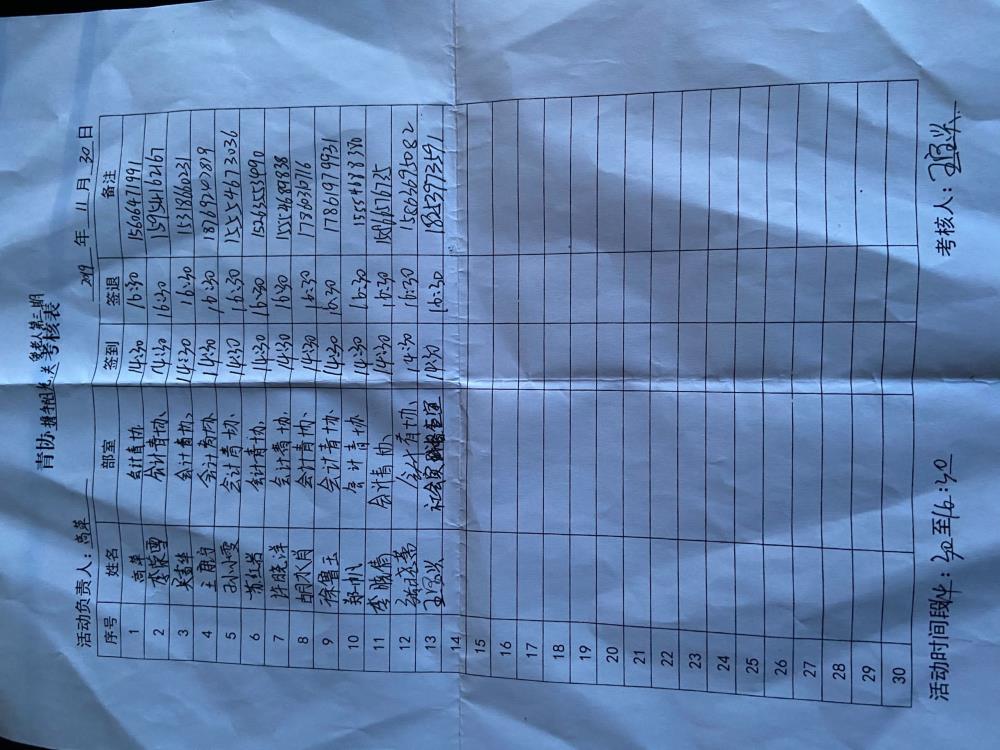 青协 考核表
活动负责人：尚菲 2019 年 11 月 30 日
序号 姓名 部室 签到 签退 备注
1 尚菲 会计青协 14:30 16:30 15606471991
2 李家雪 会计青协 14:30 16:30 15954162167
3 会计青协 14:30 16:30 15318860231
4 会计青协 14:30 16:30 18769242819
5 孙小雯 会计青协 14:30 16:30 15554673036
6 会计青协 14:30 16:30 15265553090
7 许晓洋 会计青协 14:30 16:30
8 胡水肖 会计青协 14:30 16:30
9 徐鲁玉 会计青协 14:30 16:30 17861979931
10 郑帅 会计青协 14:30 16:30
11 李晓倩 会计青协 14:30 16:30
12 会计青协 14:30 16:30 15866699082
13 14:30 16:30 18263973591
14
15
16
17
18
19
20
21
22
23
24
25
26
27
28
29
30
活动时间段14：30至16：30 考核人：